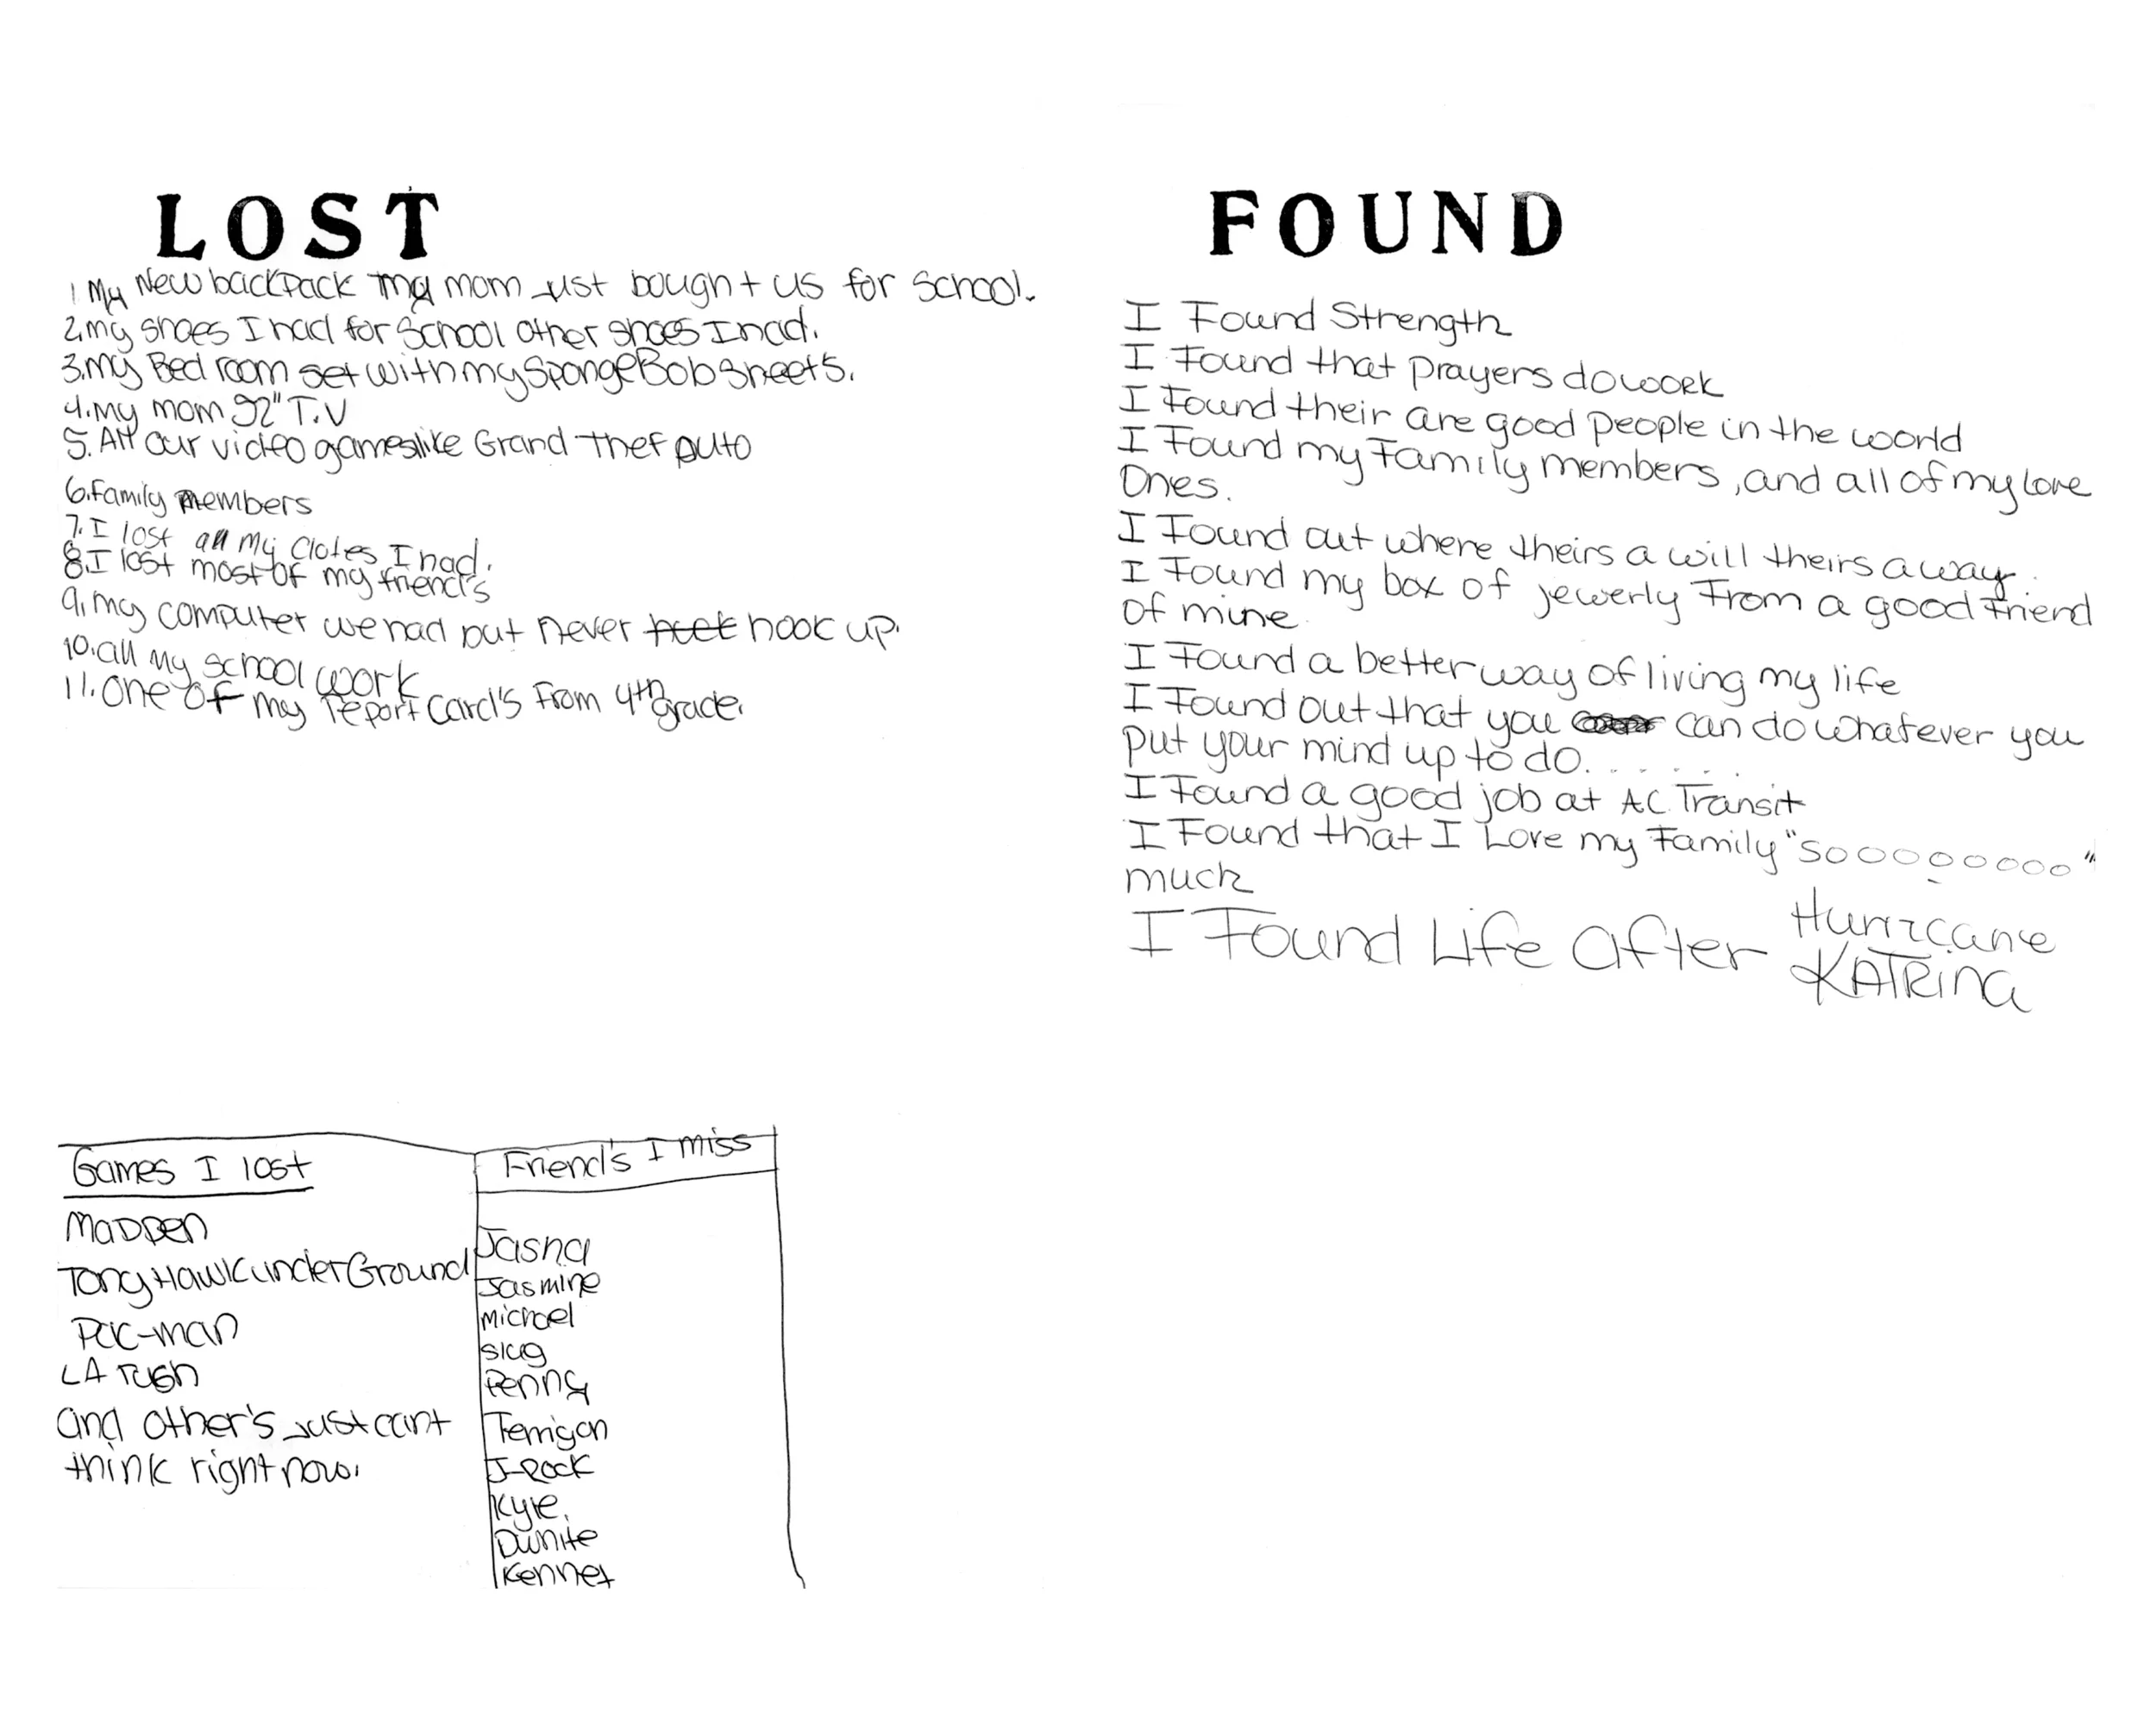 LOST
1 My New backpack my mom just bought us for School.
2. my shoes I had for School other shoes I had.
3. my Bed room set with my SpongeBob sheets.
4. My mom 92" T.V
5. All our video games like Grand thef auto
6. Family members
7. I lost all my clotes I had.
8. I lost most of my friend's
9. my computer we had but never hook up.
10. all my school work
11. one of my report card's From 4th grade.
Games I lost
MADDEN
Tony Hawk underGround
Pac-man
LA rush
and other's just cant
think right now.
Friend's I miss
Jasna
Jasmine
michael
slug
Penny
Terrigon
J-Rock
Kyle.
Dwnite
Kennet
FOUND
I Found Strength
I Found that prayers do work
I Found their are good people in the world
I Found my Family members, and all of my love
Ones.
I Found out where theirs a will theirs a way.
I Found my box of jewerly From a good Friend
of mine
I Found a better way of living my life
I Found out that you can do whatever you
put your mind up to do......
I Found a good job at AC Transit
I Found that I Love my Family "sooooooooo"
much
I Found Life after Hurricane
KATRINA